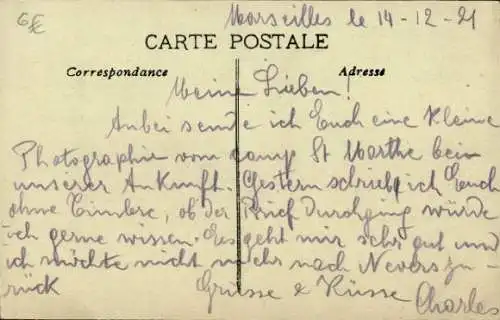 6€
Marseilles le 14-12-21
CARTE POSTALE
Correspondance
Adresse
Meine Lieben!
Anbei sende ich Euch eine Kleine
Photographie vom Camp St Marthe bein
unserer Ankunft. Gestern schrieb ich Euch
ohne Timbre, ob der Brief durchging würde
ich gerne wissen. Es geht mir sehr gut und
ich möchte nicht mehr nach Nevers zu-
rück
Grüsse & Küsse Charles